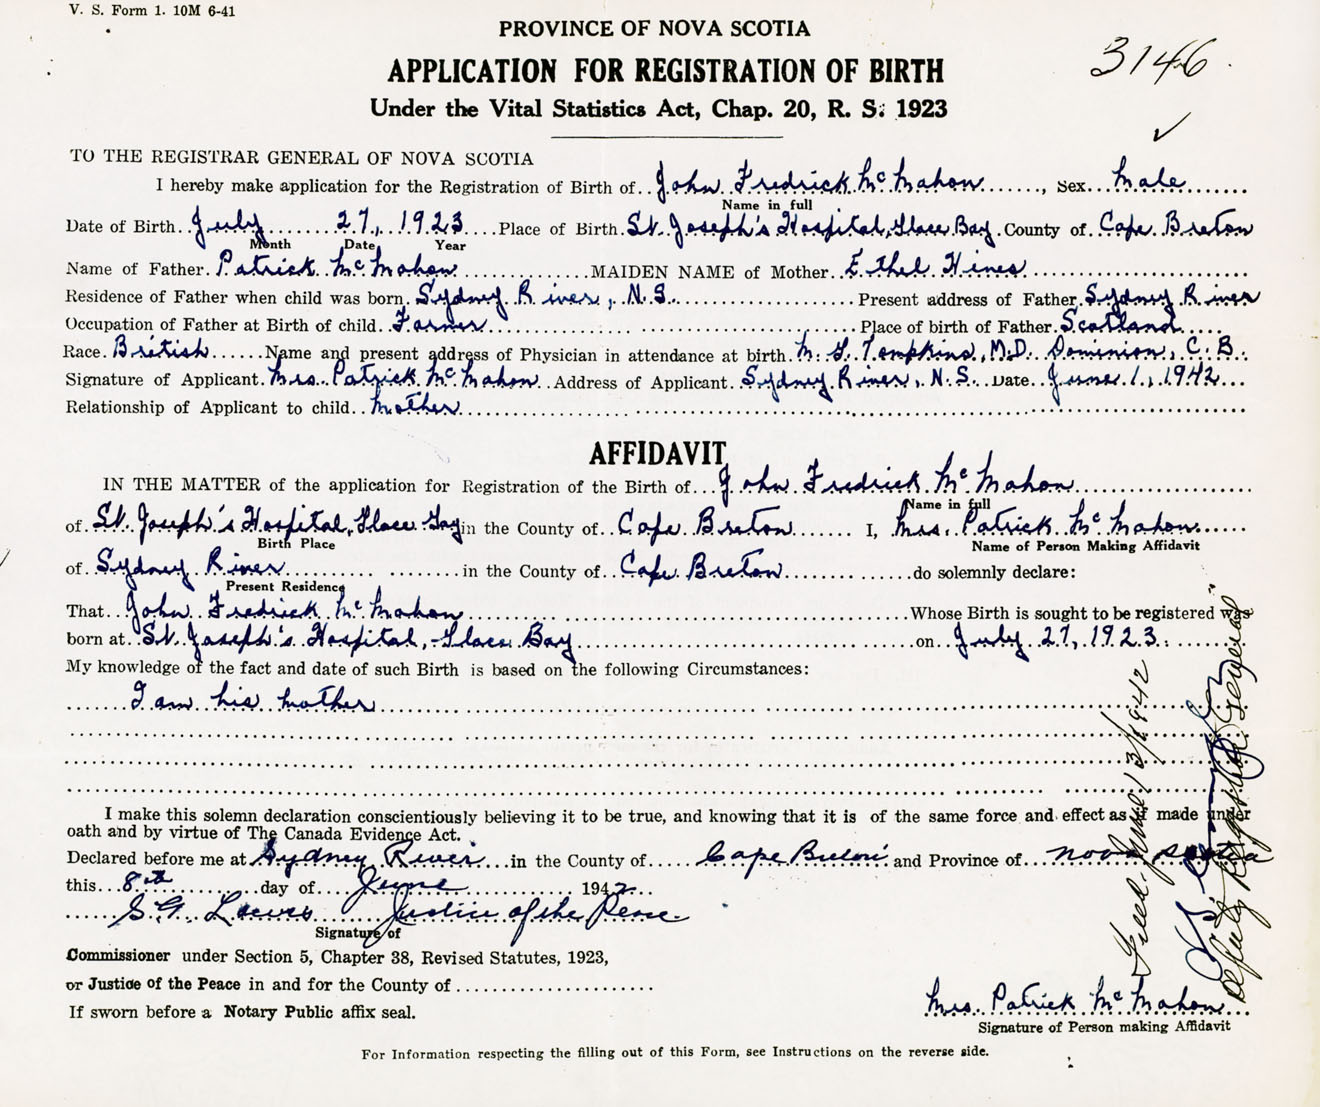 V. S. Form 1. 10M 6-41
PROVINCE OF NOVA SCOTIA
3146
APPLICATION FOR REGISTRATION OF BIRTH
Under the Vital Statistics Act, Chap. 20, R. S. 1923
TO THE REGISTRAR GENERAL OF NOVA SCOTIA
I hereby make application for the Registration of Birth of John Fredrick McMahon, Sex Male
Name in full
Date of Birth July 27, 1923 Place of Birth St. Joseph's Hospital, Glace Bay County of Cape Breton
Month Date Year
Name of Father Patrick McMahon MAIDEN NAME of Mother Ethel Hines
Residence of Father when child was born Sydney River, N.S. Present address of Father Sydney River
Occupation of Father at Birth of child Farmer Place of birth of Father Scotland
Race British Name and present address of Physician in attendance at birth M. G. Tompkins, M.D. Dominion, C. B.
Signature of Applicant Mrs. Patrick McMahon Address of Applicant Sydney River, N.S. Date June 1, 1942
Relationship of Applicant to child Mother
AFFIDAVIT
IN THE MATTER of the application for Registration of the Birth of John Fredrick McMahon
Name in full
of St. Joseph's Hospital, Glace Bay in the County of Cape Breton I, Mrs. Patrick McMahon
Birth Place Name of Person Making Affidavit
of Sydney River in the County of Cape Breton do solemnly declare:
Present Residence
That John Fredrick McMahon Whose Birth is sought to be registered was
born at St. Joseph's Hospital, Glace Bay on July 27, 1923
My knowledge of the fact and date of such Birth is based on the following Circumstances:
I am his mother
I make this solemn declaration conscientiously believing it to be true, and knowing that it is of the same force and effect as if made under
oath and by virtue of The Canada Evidence Act.
Declared before me at Sydney River in the County of Cape Breton and Province of Nova Scotia
this 8th day of June 1942
S. G. Justice of the Peace
Signature of
Commissioner under Section 5, Chapter 38, Revised Statutes, 1923,
or Justice of the Peace in and for the County of
If sworn before a Notary Public affix seal.
Mrs. Patrick McMahon
Signature of Person making Affidavit
For Information respecting the filling out of this Form, see Instructions on the reverse side.
Filed 1942
Deputy Registrar General